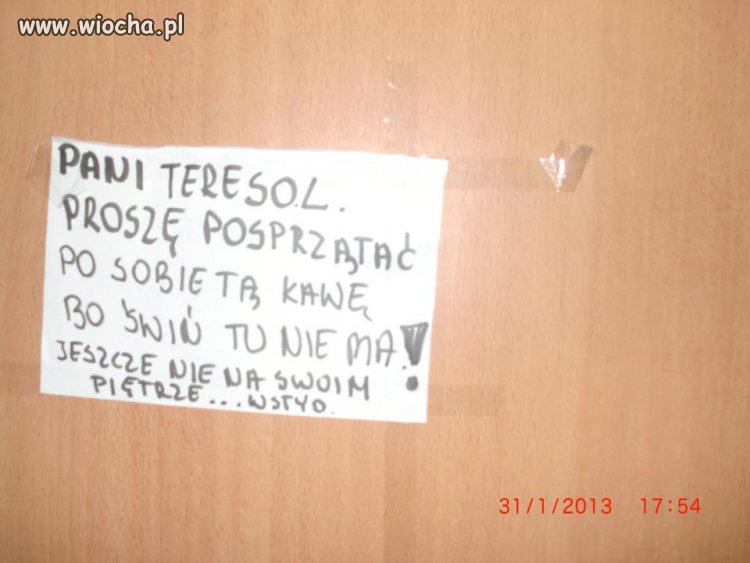 www.wiocha.pl
PANI TERESO.L.
PROSZĘ POSPRZĄTAĆ
PO SOBIE TĄ KAWĘ
BO ŚWIŃ TU NIE MA!
JESZCZE NIE NA SWOIM
PIĘTRZE... WSTYD.
31/1/2013 17:54